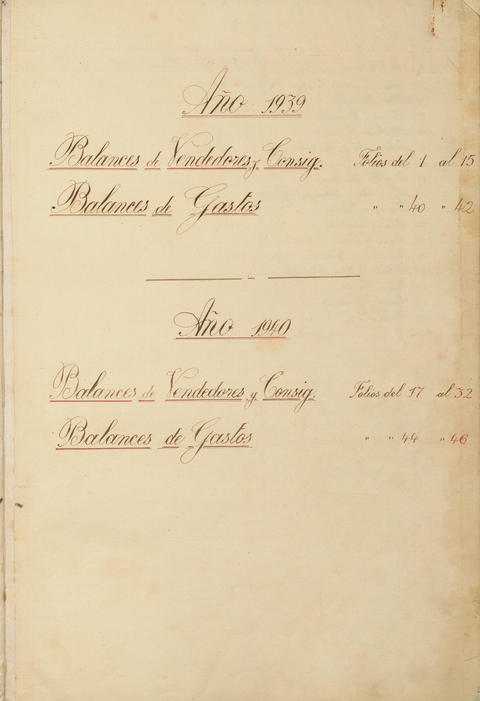 Año 1939
Balances de Vendedores y Consig. Folios del 1 al 15
Balances de Gastos " " 40 " 42
Año 1940
Balances de Vendedores y Consig. Folios del 17 al 32
Balances de Gastos " " 44 " 46